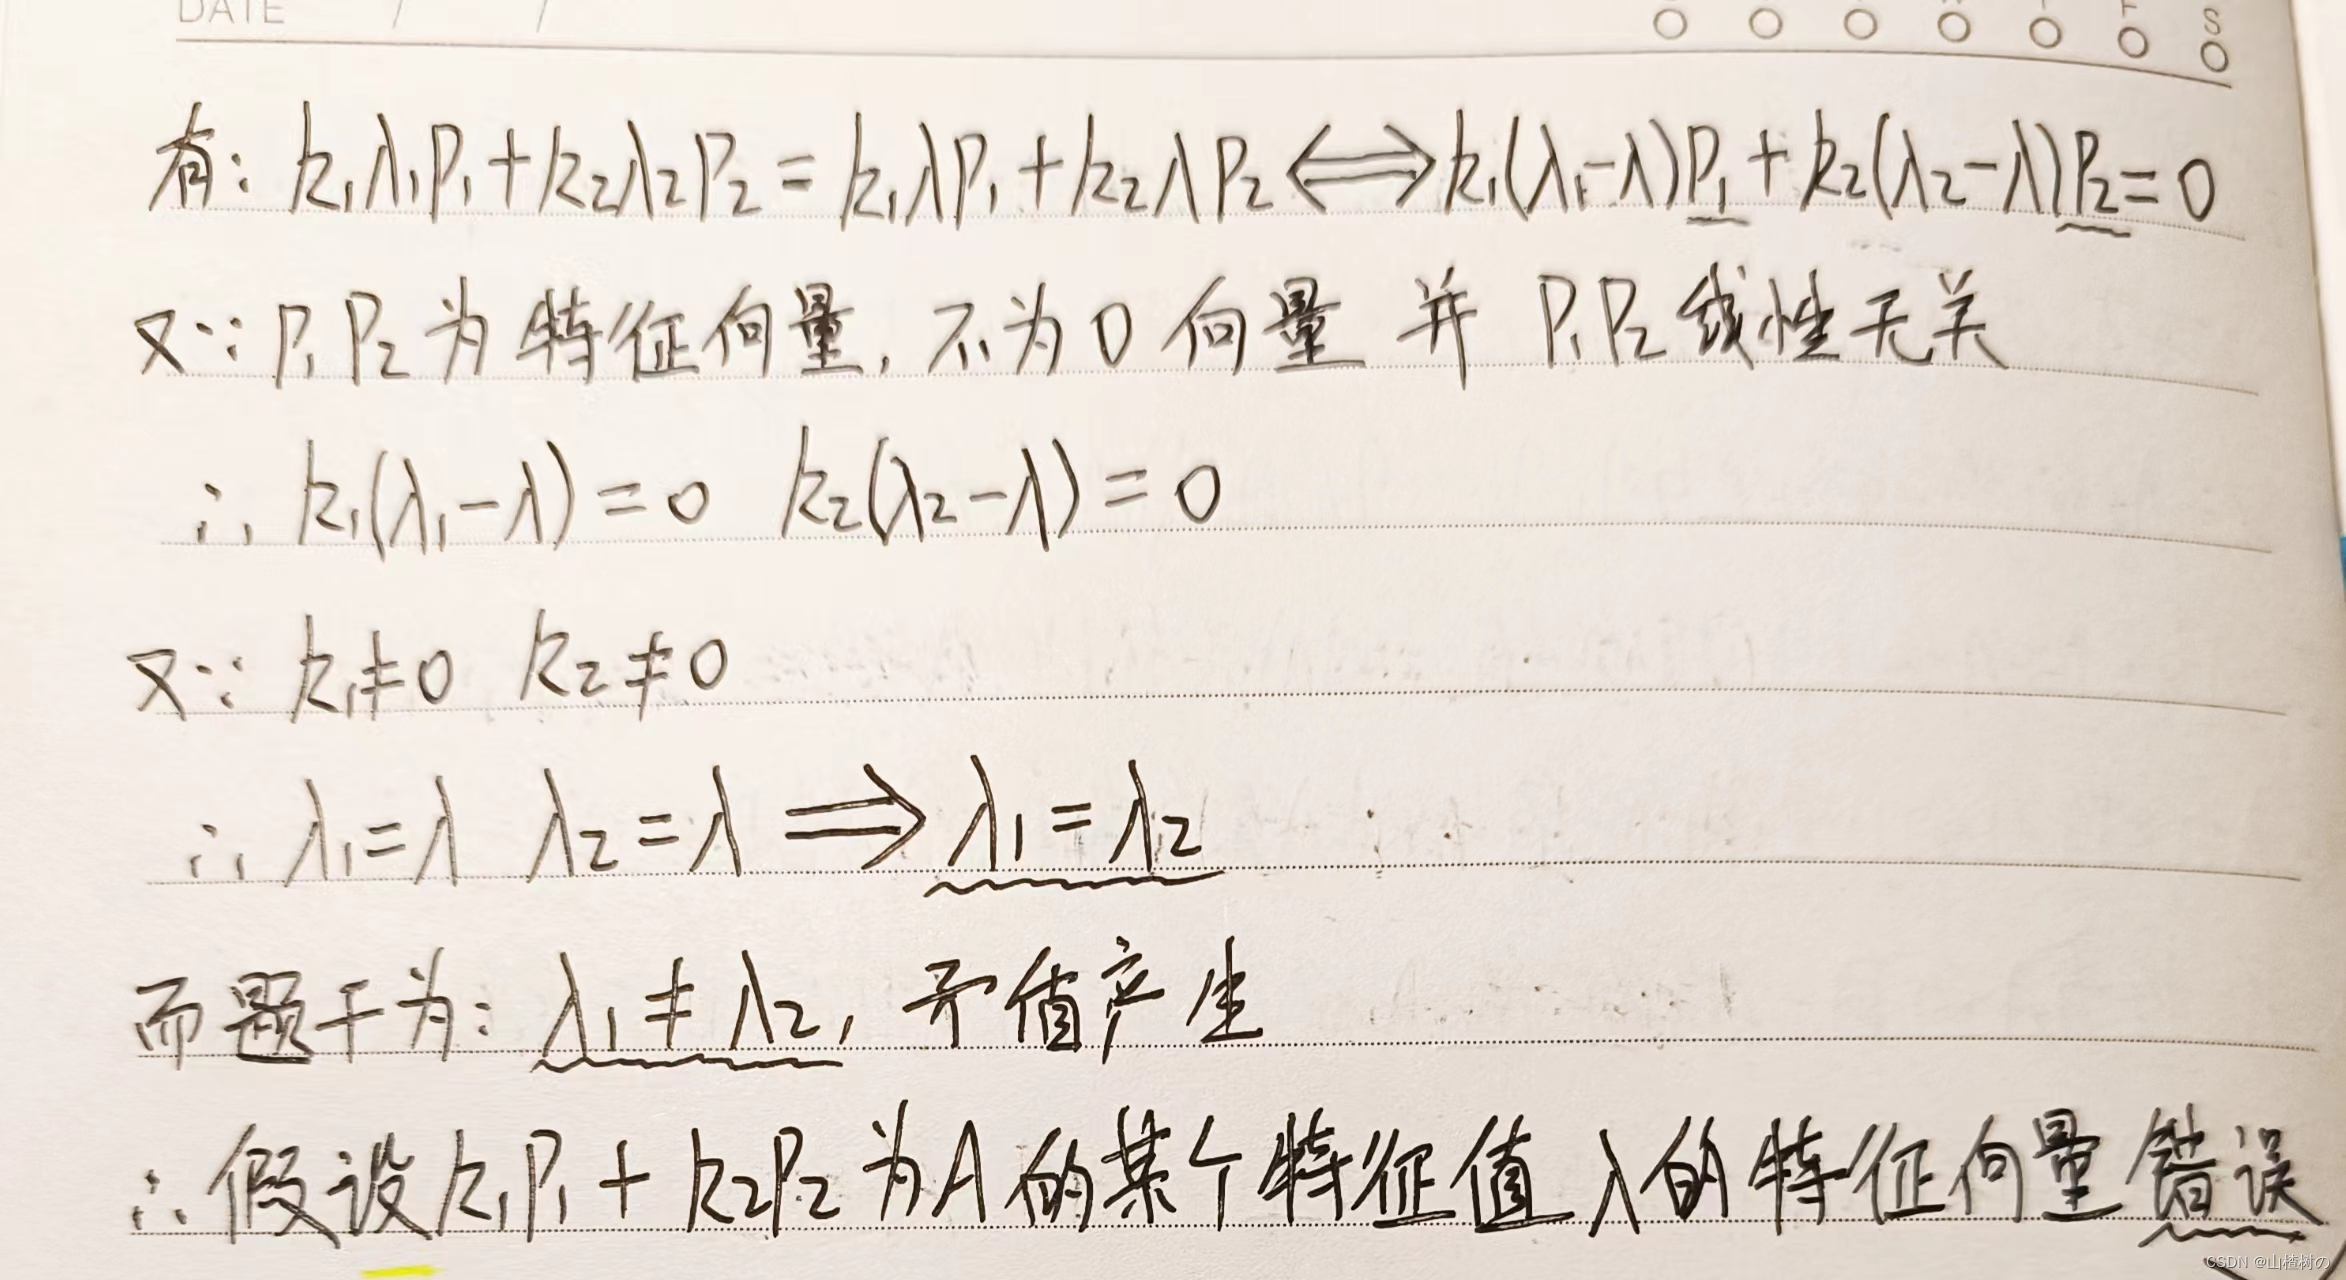 DATE / /
S
有: k₁λ₁P₁+k₂λ₂P₂=k₁λP₁+k₂λP₂⟺k₁(λ₁-λ)P₁+k₂(λ₂-λ)P₂=0
又∵P₁P₂为特征向量,不为0向量 并 P₁P₂线性无关
∴k₁(λ₁-λ)=0 k₂(λ₂-λ)=0
又∵k₁≠0 k₂≠0
∴λ₁=λ λ₂=λ⟹λ₁=λ₂
而题干为:λ₁≠λ₂,矛值产生
∴假设k₁P₁+k₂P₂为A的某个特征值λ的特征向量错误
CSDN @山楂树の